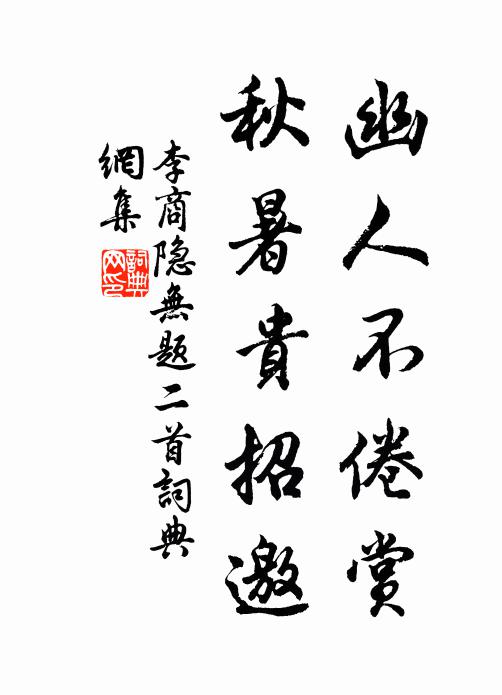 幽人不倦赏
秋暑貴招邀
李商隐無题二首詞典
網集
詞典
网印